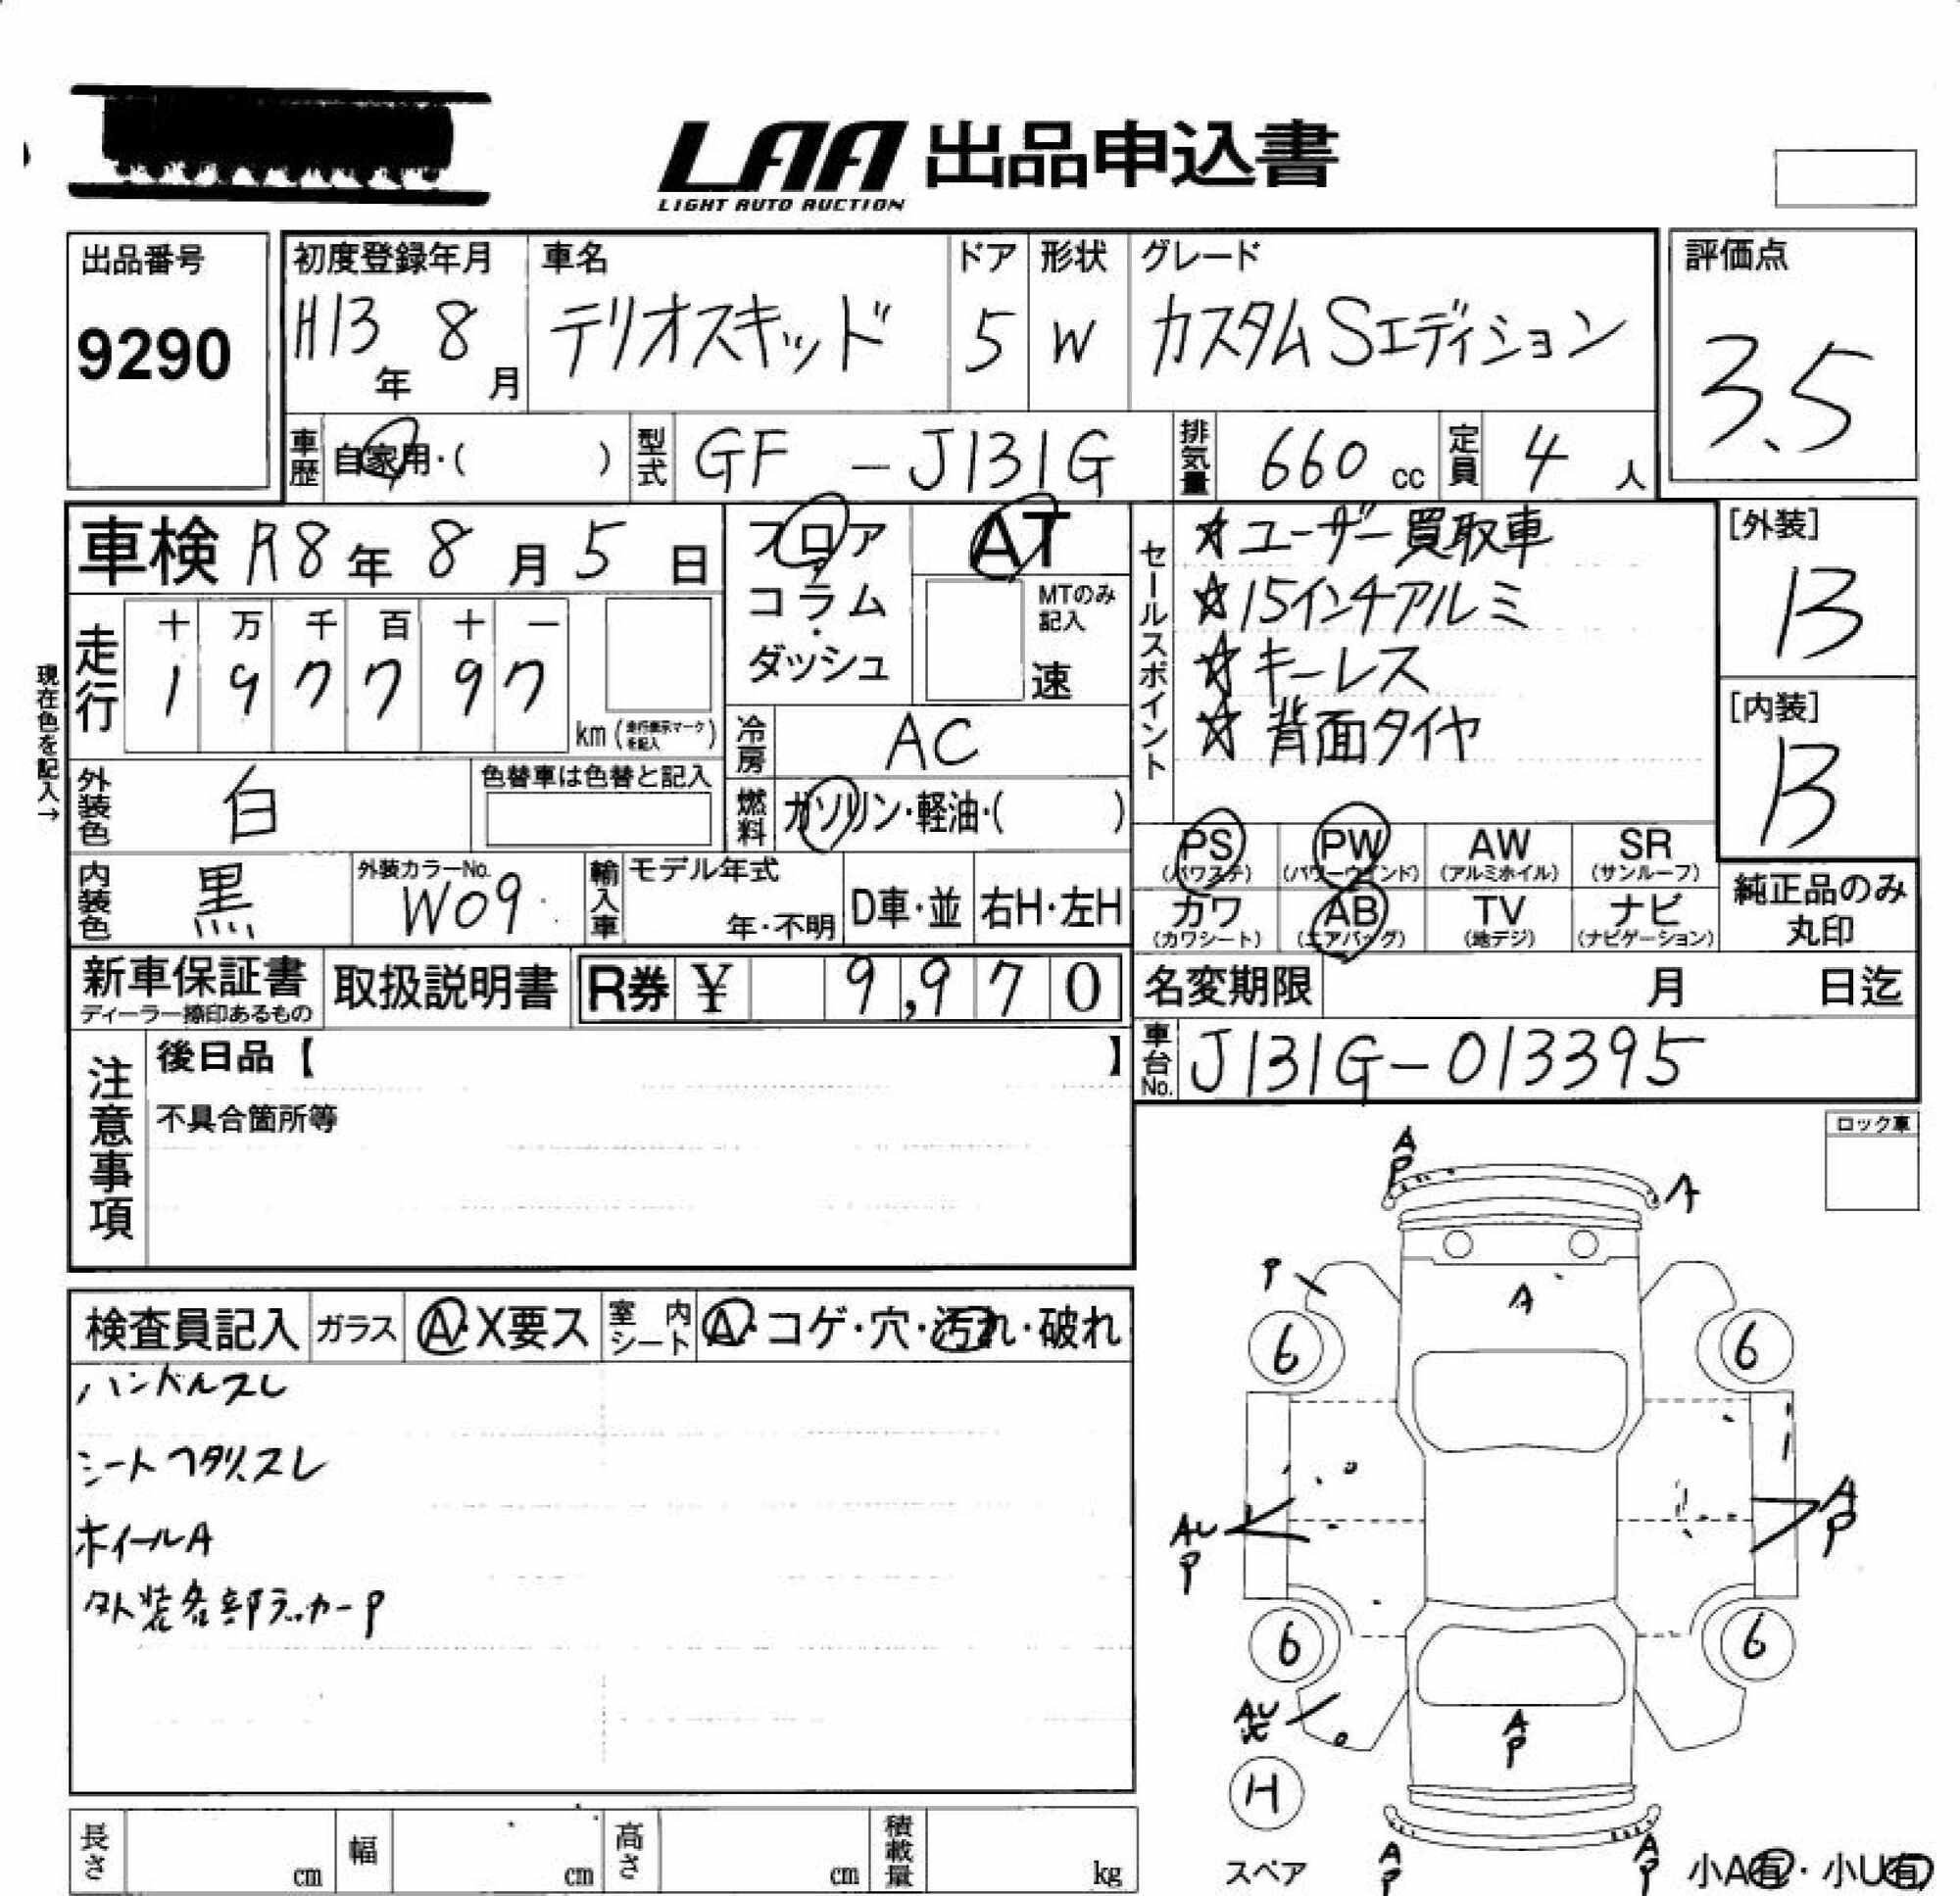 LAA 出品申込書
LIGHT AUTO AUCTION
出品番号
9290
初度登録年月 車名 ドア 形状 グレード
H13年 8月 テリオスキッド 5 W カスタムSエディション
評価点
3.5
車歴 自家用・( ) 型式 GF -J131G 排気量 660cc 定員 4人
車検 R8年 8月 5日
フロア
コラム
・
ダッシュ
AT
MTのみ
記入
速
セールスポイント
☆ユーザー買取車
☆15インチアルミ
☆キーレス
☆背面タイヤ
[外装]
B
[内装]
B
現在色を記入→
走行 十 万 千 百 十 一
1 9 7 7 9 7
km (走行表示マークを記入)
冷房 AC
外装色 白 色替車は色替と記入
燃料 ガソリン・軽油・( )
PS (パワステ) PW (パワーウインド) AW (アルミホイル) SR (サンルーフ)
カワ (カワシート) AB (エアバッグ) TV (地デジ) ナビ (ナビゲーション)
純正品のみ
丸印
内装色 黒 外装カラーNo. W09 輸入車 モデル年式 年・不明 D車・並 右H・左H
新車保証書 ディーラー捺印あるもの 取扱説明書 R券 ¥ 9,970 名変期限 月 日迄
車台No. J131G-013395
注意事項
後日品【 】
不具合箇所等
ロック車
検査員記入 ガラス A・X要ス 室内シート A・コゲ・穴・汚れ・破れ
ハンドルスレ
シートヘタリ、スレ
ホイールA
外装各部ラッカーP
A
P
A
P
A
6
6
AU
P
A
P
6
6
AU
A
P
H
スペア
A
P
A
P
小A有・小U有
長さ cm 幅 cm 高さ cm 積載量 kg